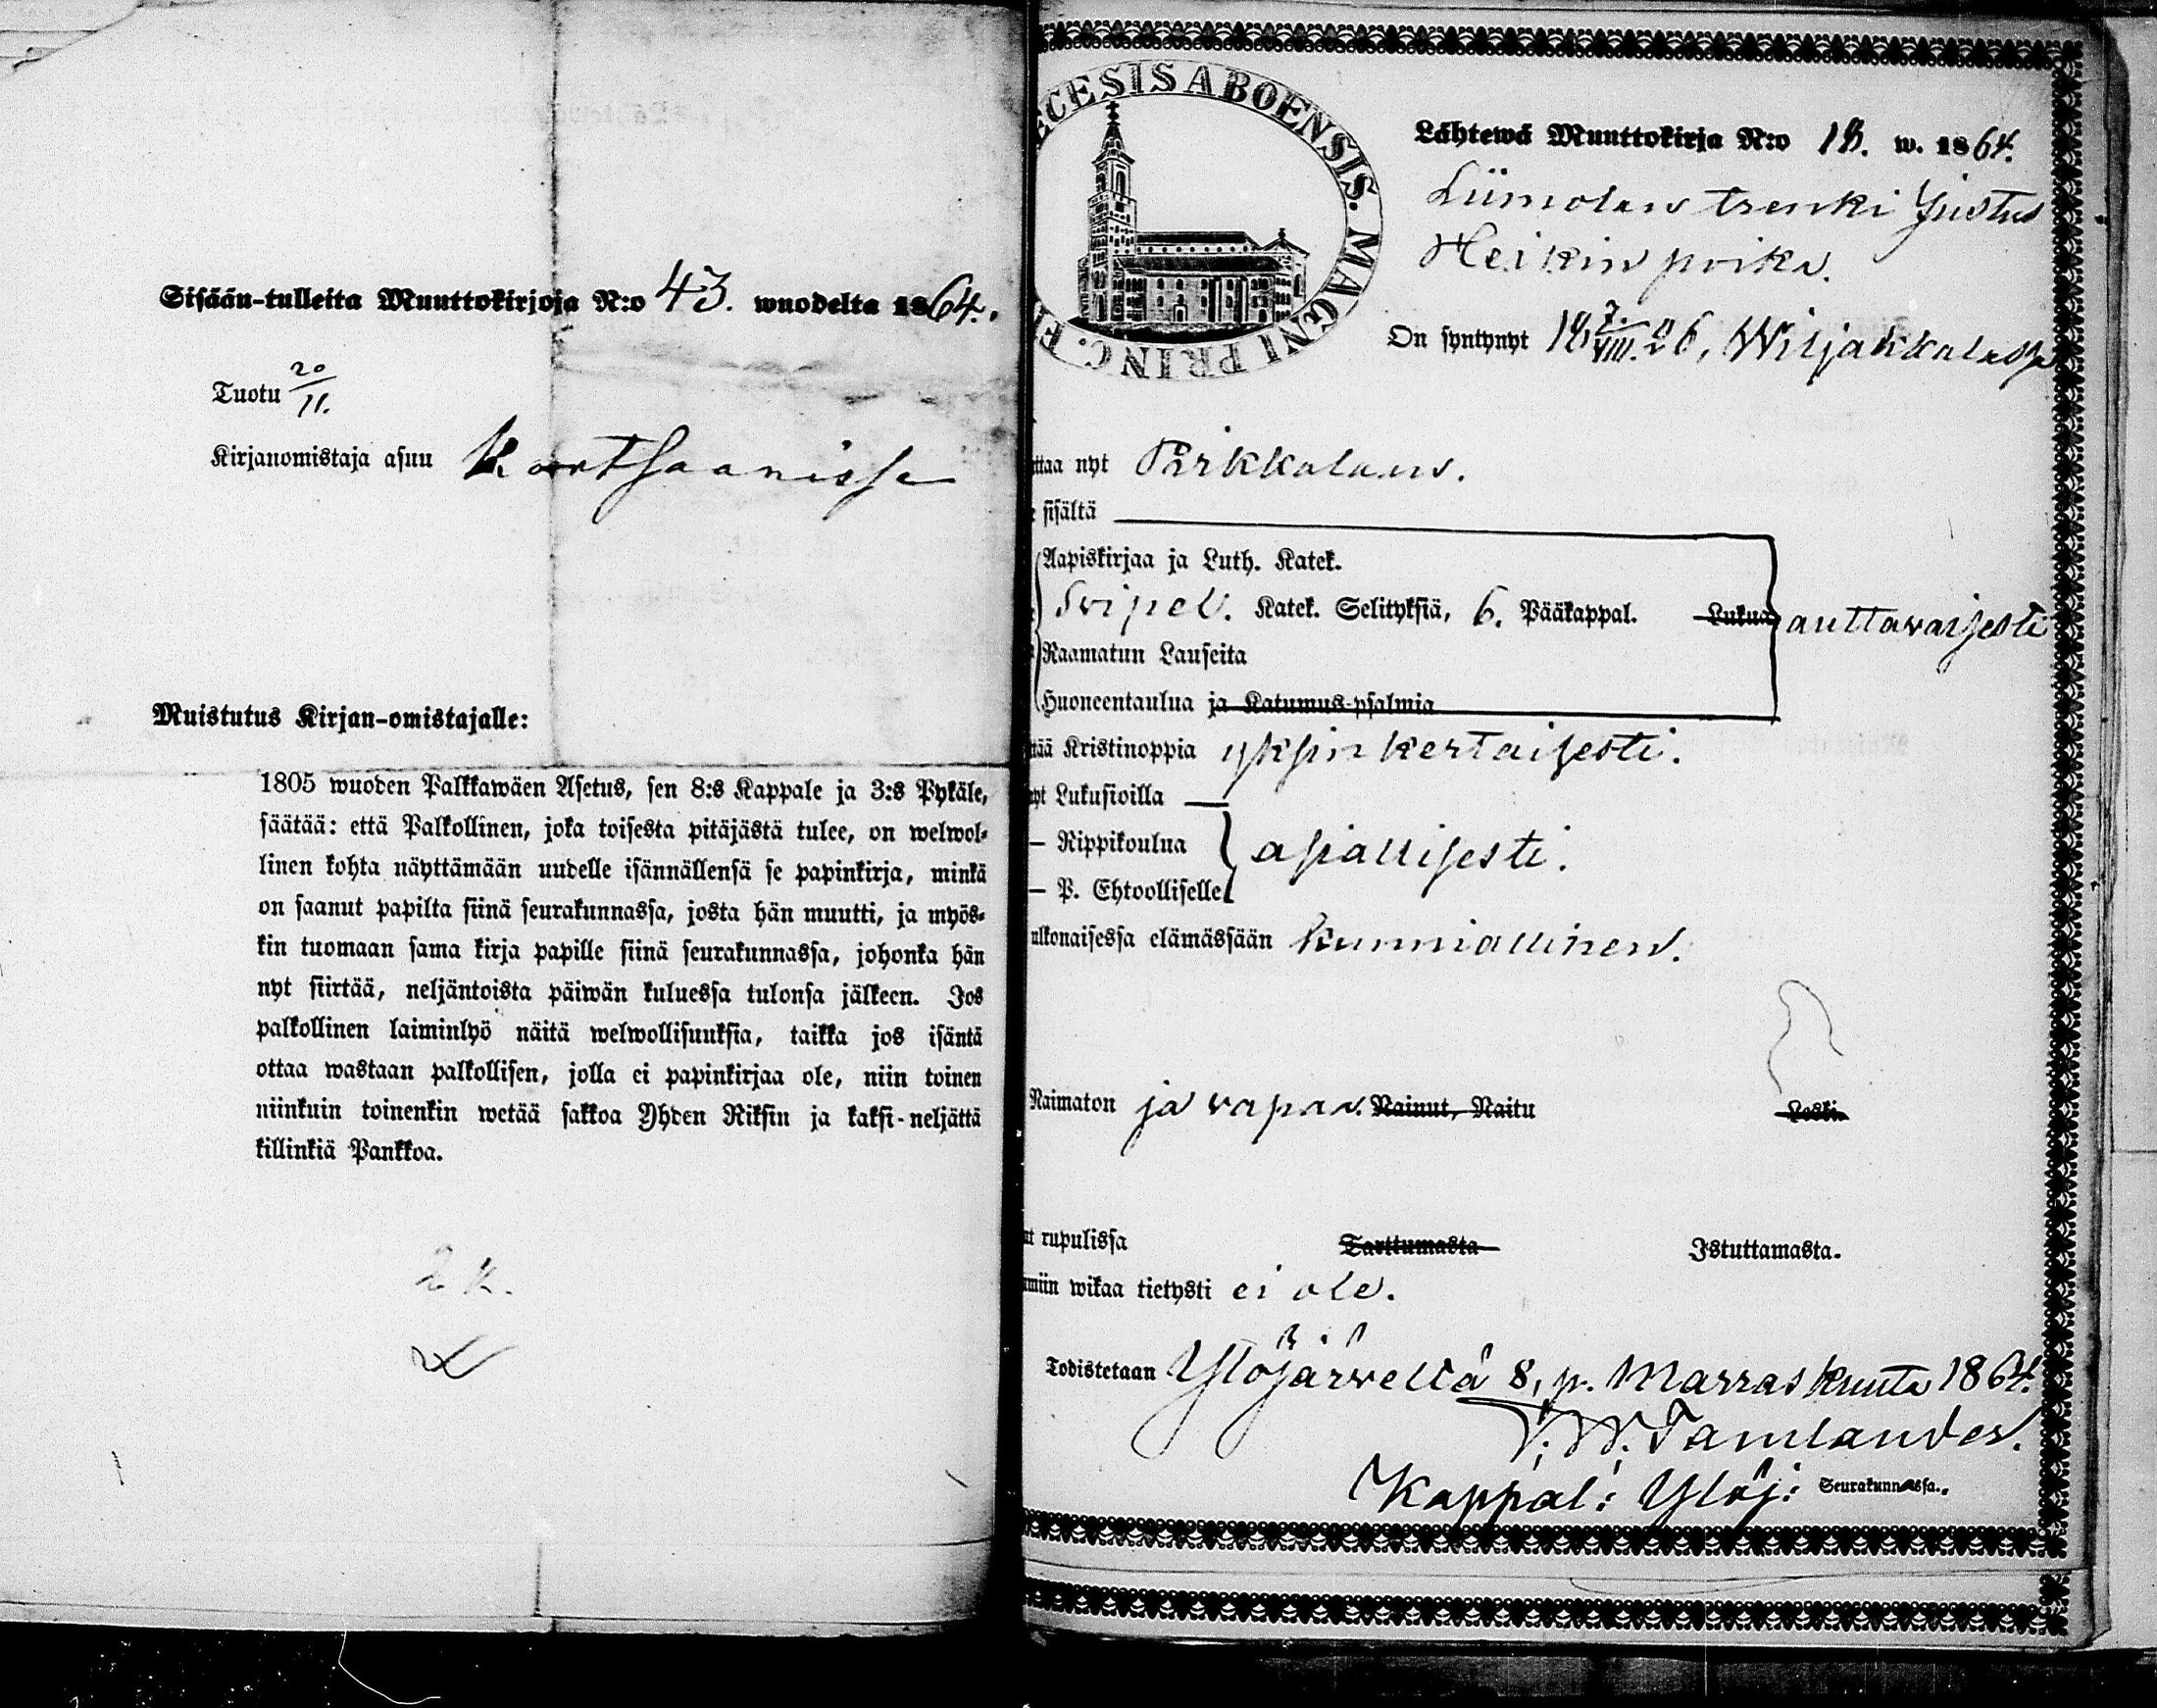 Sisään-tulleita Muuttokirjoja N:o 43. wuodelta 1864.
Tuotu 20/11.
Kirjanomistaja asuu
Muistutus Kirjan-omistajalle:
1805 wuoden Palkkawäen Asetus, sen 8:s Kappale ja 3:s Pykäle,
säätää: että Palkollinen, joka toisesta pitäjästä tulee, on welwol-
linen kohta näyttämään uudelle isännällensä se papinkirja, minkä
on saanut papilta siinä seurakunnassa, josta hän muutti, ja myös-
kin tuomaan sama kirja papille siinä seurakunnassa, johonka hän
nyt siirtää, neljäntoista päiwän kuluessa tulonsa jälkeen. Jos
palkollinen laiminlyö näitä welwollisuuksia, taikka jos isäntä
ottaa wastaan palkollisen, jolla ei papinkirjaa ole, niin toinen
niinkuin toinenkin wetää sakkoa Yhden Riksin ja kaksi-neljättä
killinkiä Pankkoa.
2 k.
ECESIS ABOENSIS. MAGNI PRINC. F
Lähtewä Muuttokirja N:o 18. w. 1864.
Liimolan trenki Justus
Heikin poika.
On syntynyt 18 7/VIII. 26, Wiljakkalassa
ttaa nyt Pirkkalaan.
sisältä
Aapiskirjaa ja Luth. Katek.
Svipel. Katek. Selityksiä, 6. Pääkappal. Lukua auttavaisesti
Raamatun Lauseita
Huoneentaulua ja Katumus-psalmia
tää Kristinoppia yksinkertaisesti.
yt Lukusioilla
— Rippikoulua
asiallisesti.
— P. Ehtoolliselle
ulkonaisessa elämässään kunniallinen.
Naimaton ja vapaa. Nainut, Naitu Leski.
t rupulissa Tarttumasta Istuttamasta.
miin wikaa tietysti ei ole.
Todistetaan Ylöjärvellä 8, p. Marraskuuta 1864.
Tamlander.
Kappal: Ylöj: Seurakunnassa.